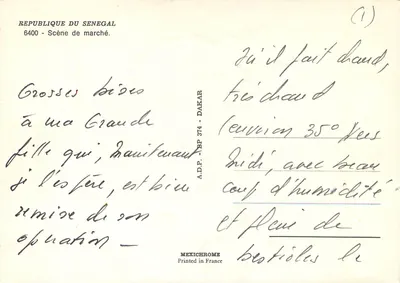 REPUBLIQUE DU SENEGAL
6400 - Scène de marché.
(1)
Grosses bises
à ma Grande
fille qui, maintenant
je l'espère, est bien
remise de son
opération -
A.D.P. - BP 374 - DAKAR
Ici il fait chaud,
très chaud
(environ 35° vers
midi, avec beau
coup d'humidité
et plein de
bestioles le
MEXICHROME
Printed in France